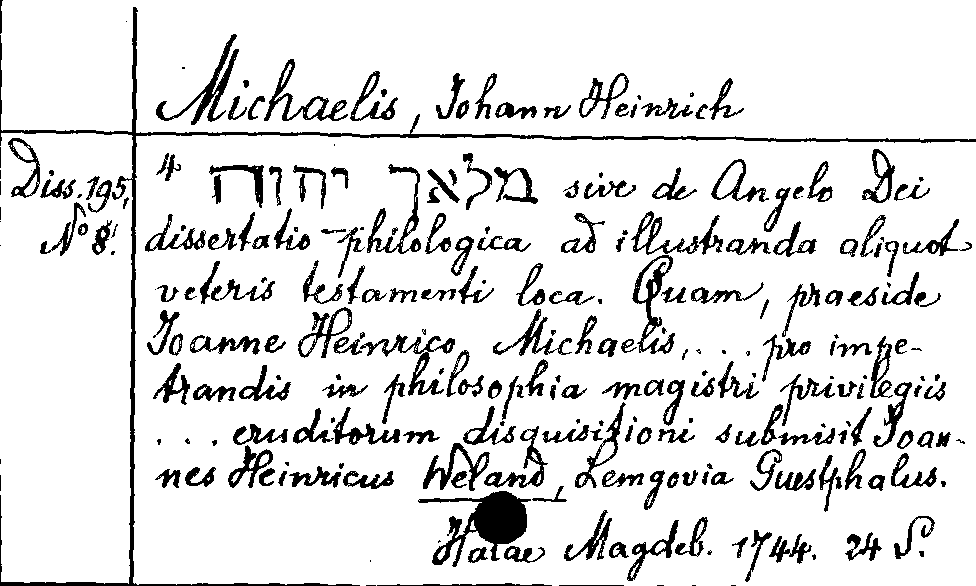 Michaelis, Johann Heinrich
Diss. 195,
No 8.
4 מלאך יהוה sive de Angelo Dei
dissertatio philologica ad illustranda aliquot
veteris testamenti loca. Quam, praeside
Joanne Heinrico Michaelis, ... pro impe-
trandis in philosophia magistri privilegiis
... eruditorum disquisitioni submisit Joan-
nes Heinricus Weland, Lemgovia Guestphalus.
Halae Magdeb. 1744. 24 S.